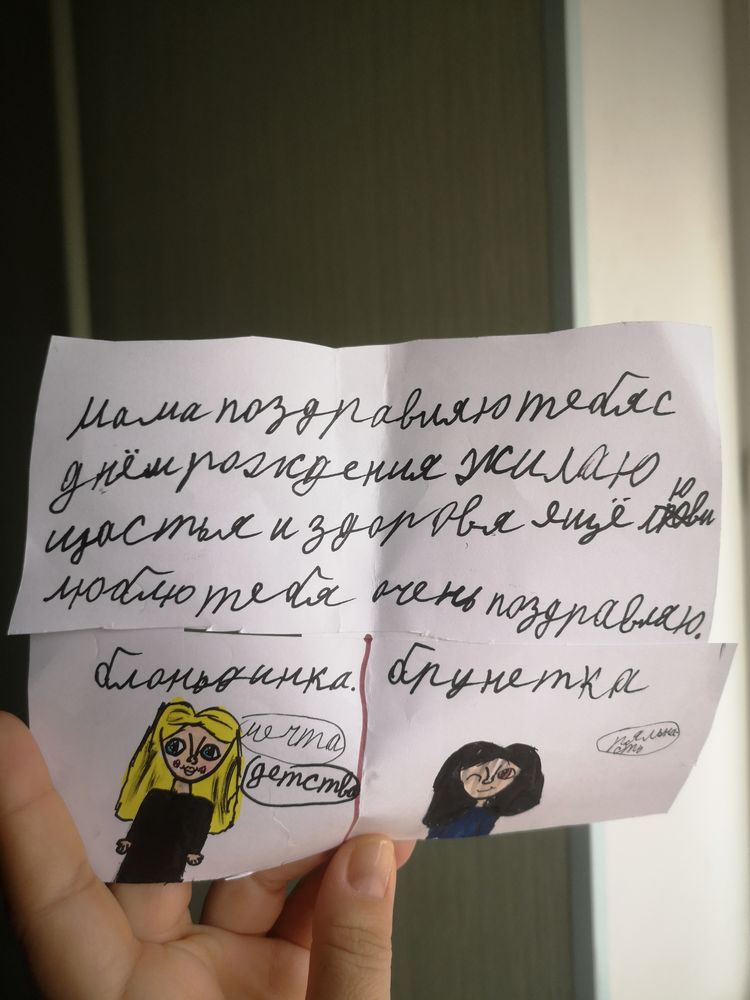 Мама поздравляю тебя с
днём рождения жилаю
щастья и здоровья ящё любви
люблю тебя очень поздравляю.
блоньдинка. брунетка
мечта
детство